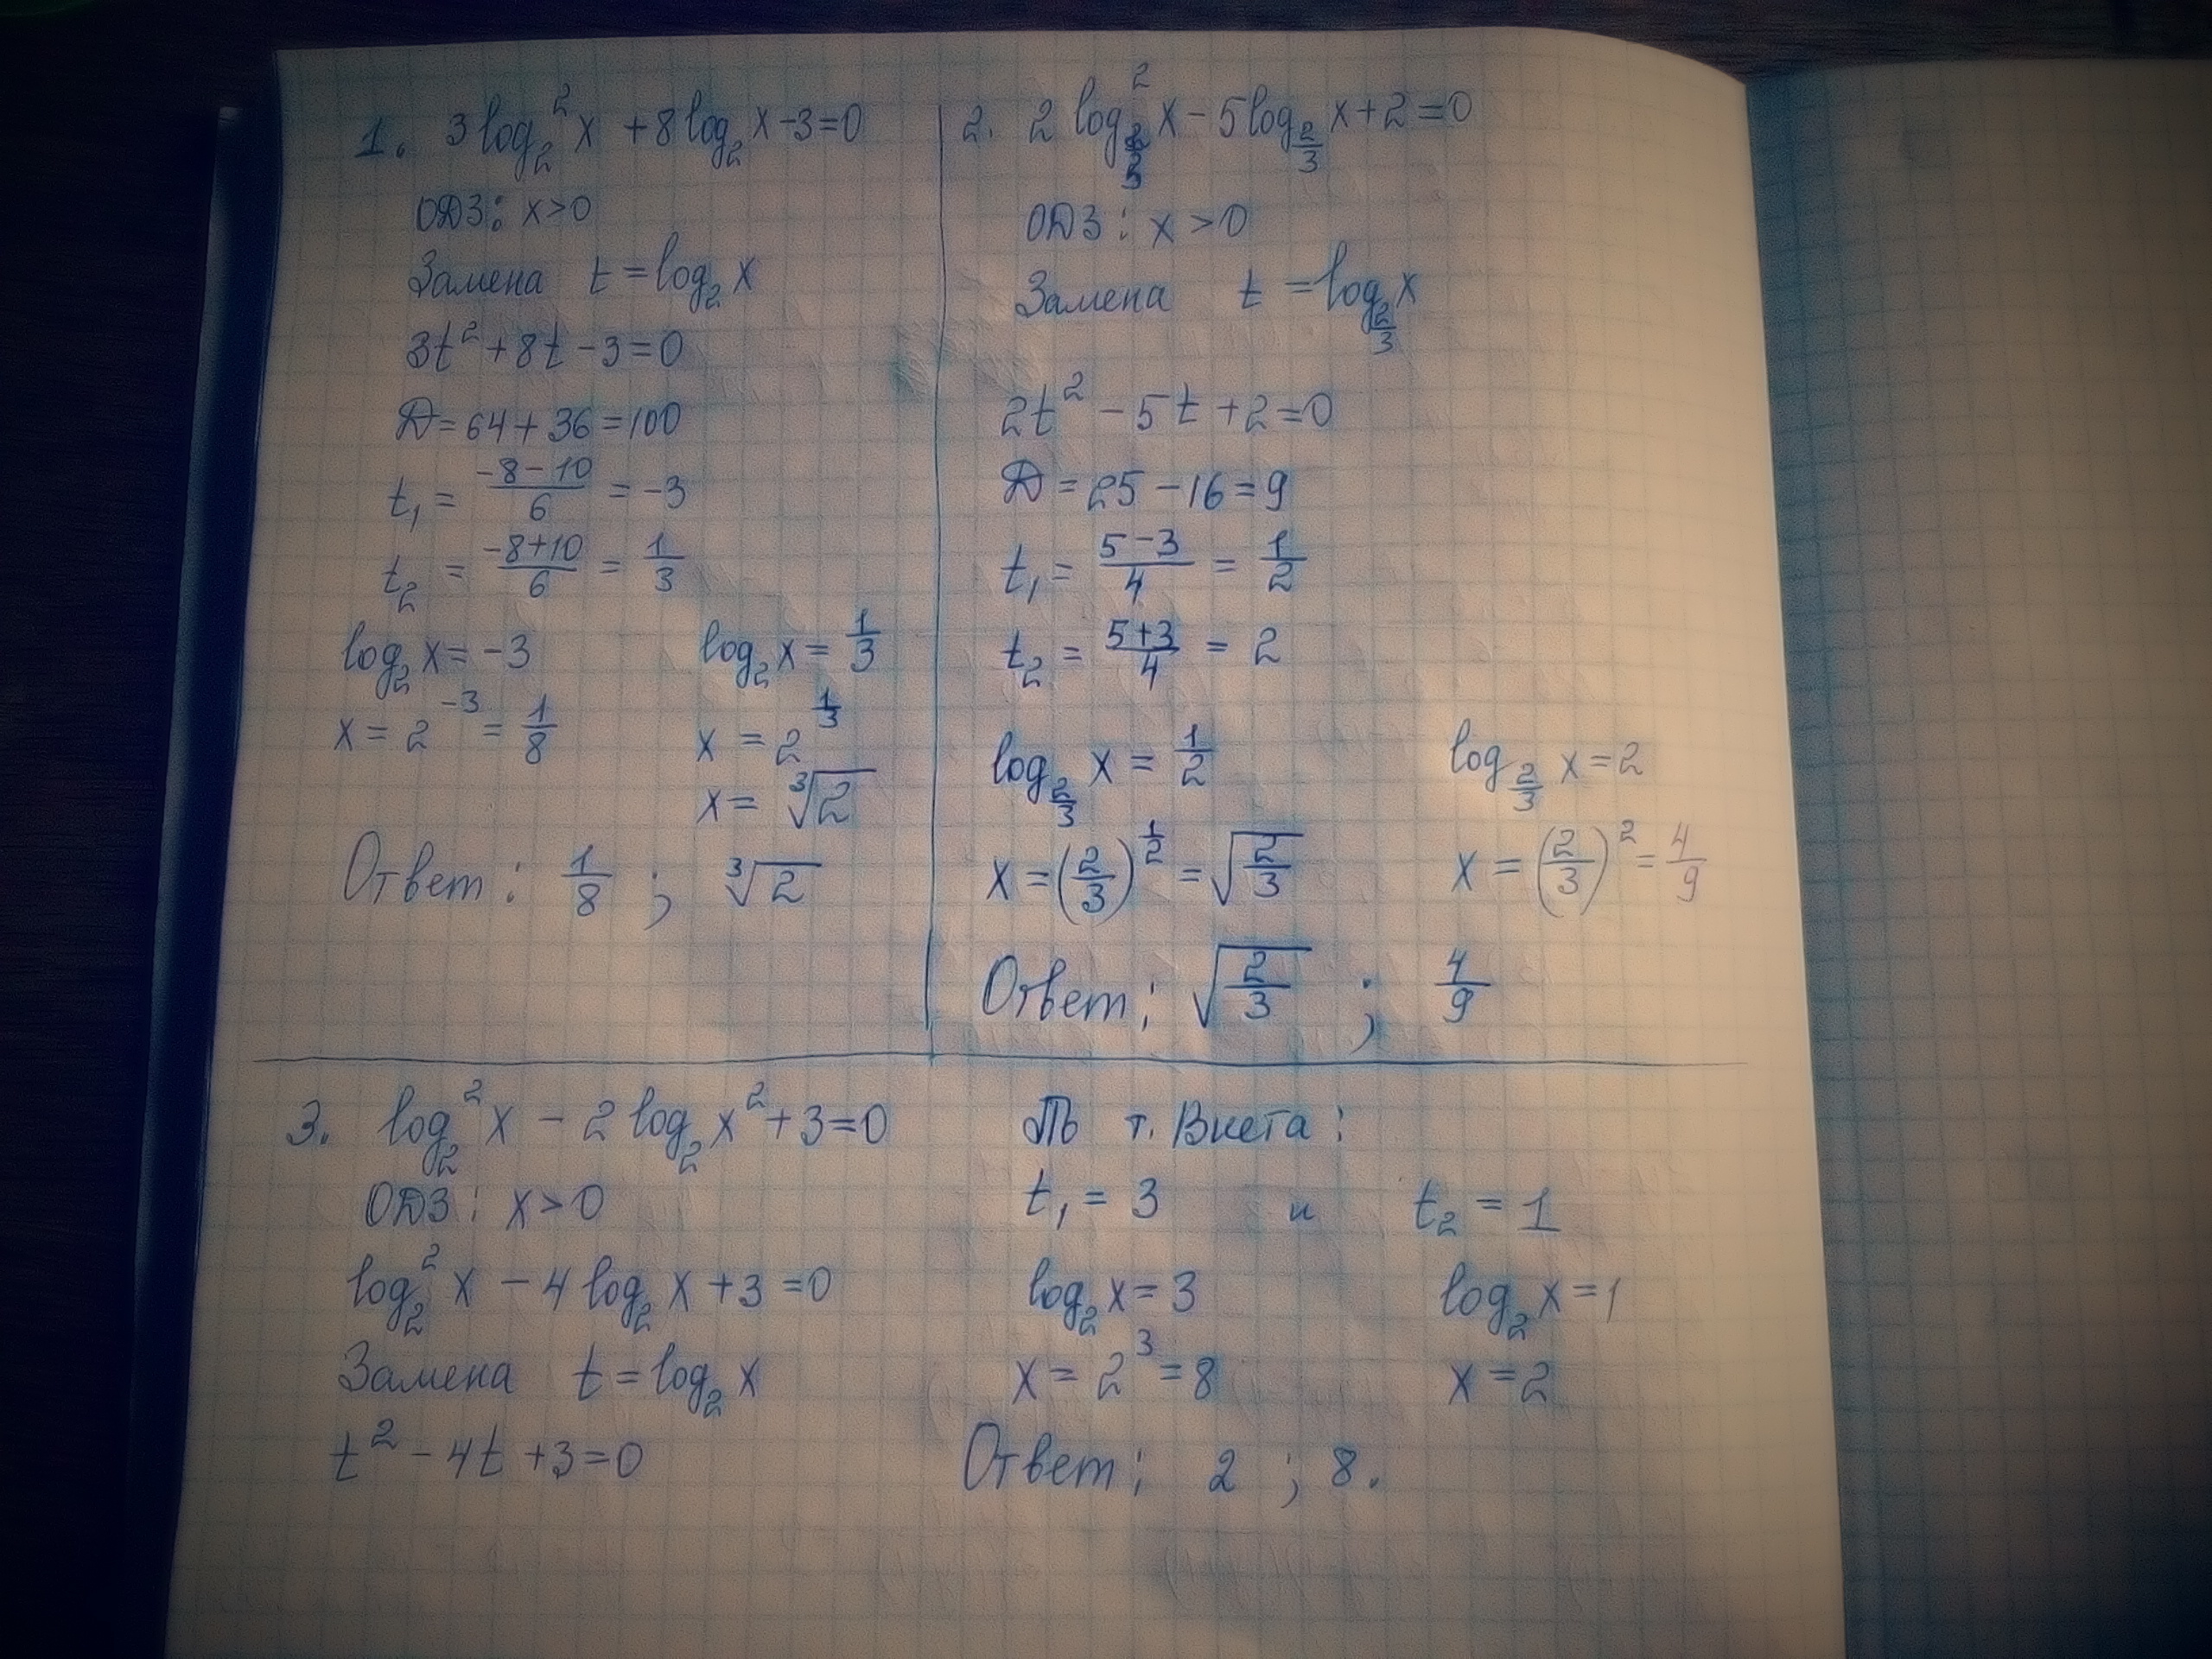 1. 3log₂²x + 8log₂x - 3 = 0
ОДЗ: x > 0
Замена t = log₂x
3t² + 8t - 3 = 0
D = 64 + 36 = 100
t₁ = (-8 - 10)/6 = -3
t₂ = (-8 + 10)/6 = 1/3
log₂x = -3 log₂x = 1/3
x = 2⁻³ = 1/8 x = 2^(1/3)
x = ∛2
Ответ: 1/8 ; ∛2
2. 2log²_(2/3) x - 5log_(2/3) x + 2 = 0
ОДЗ: x > 0
Замена t = log_(2/3) x
2t² - 5t + 2 = 0
D = 25 - 16 = 9
t₁ = (5 - 3)/4 = 1/2
t₂ = (5 + 3)/4 = 2
log_(2/3) x = 1/2 log_(2/3) x = 2
x = (2/3)^(1/2) = √(2/3) x = (2/3)² = 4/9
Ответ: √(2/3) ; 4/9
3. log₂²x - 2log₂x² + 3 = 0
ОДЗ: x > 0
log₂²x - 4log₂x + 3 = 0
Замена t = log₂x
t² - 4t + 3 = 0
т. Виета:
t₁ = 3 и t₂ = 1
log₂x = 3 log₂x = 1
x = 2³ = 8 x = 2
Ответ: 2 ; 8.